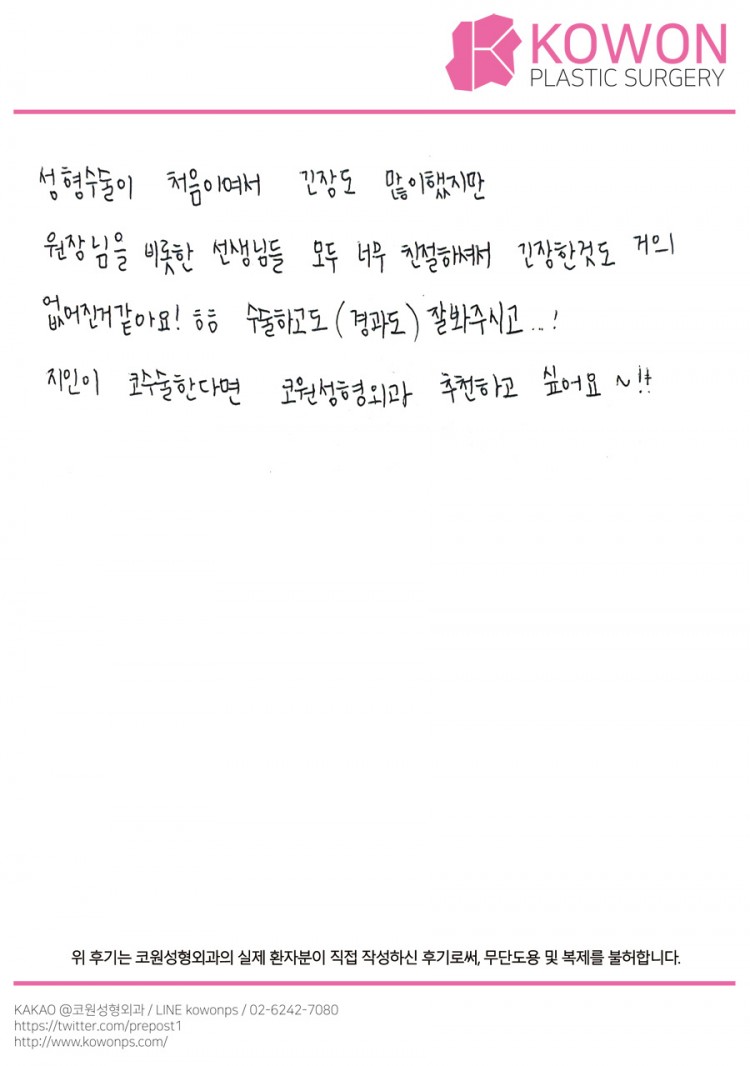 KOWON
PLASTIC SURGERY
성형수술이 처음이여서 긴장도 많이했지만
원장님을 비롯한 선생님들 모두 너무 친절하셔서 긴장한것도 거의
없어진거같아요! ㅎㅎ 수술하고도 (경과도) 잘봐주시고...!
지인이 코수술한다면 코원성형외과 추천하고 싶어요~!!
위 후기는 코원성형외과의 실제 환자분이 직접 작성하신 후기로써, 무단도용 및 복제를 불허합니다.
KAKAO @코원성형외과 / LINE kowonps / 02-6242-7080
https://twitter.com/prepost1
http://www.kowonps.com/